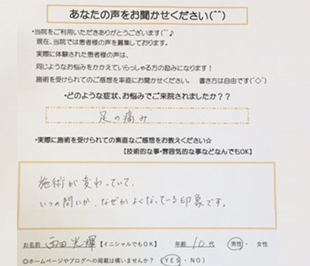 あなたの声をお聞かせください(^^)
・当院をご利用いただきありがとうございます(^^♪
現在、当院では患者様の声を募集しております。
実際に体験された患者様の声は、
同じようなお悩みをかかえていらっしゃる方の励みになります！
施術を受けられてのご感想を率直にお聞かせください。 書き方は自由です(^◇^)
・どのような症状、お悩みでご来院されましたか？？
足の痛み
・実際に施術を受けられての素直なご感想をお教えください☆
【技術的な事・雰囲気的な事などなんでもOK】
施術が変わっていて、
いつの間にか、なぜかよくなっている印象です。
お名前 西田光輝 【イニシャルでもOK】 年齢 10代 男性・女性
◎ホームページやブログへの掲載は構いませんか？ (YES・NO)